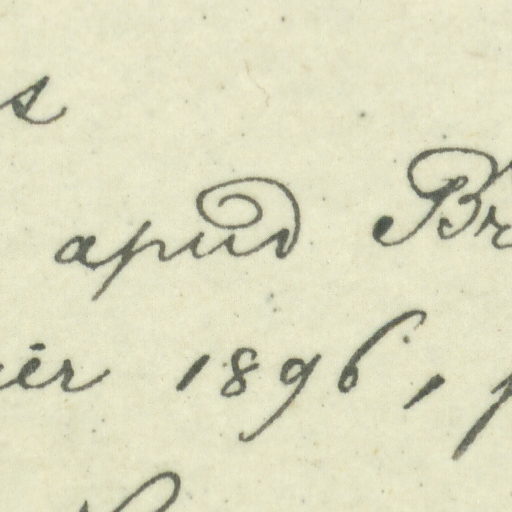 s
apud Br
ier 1896,